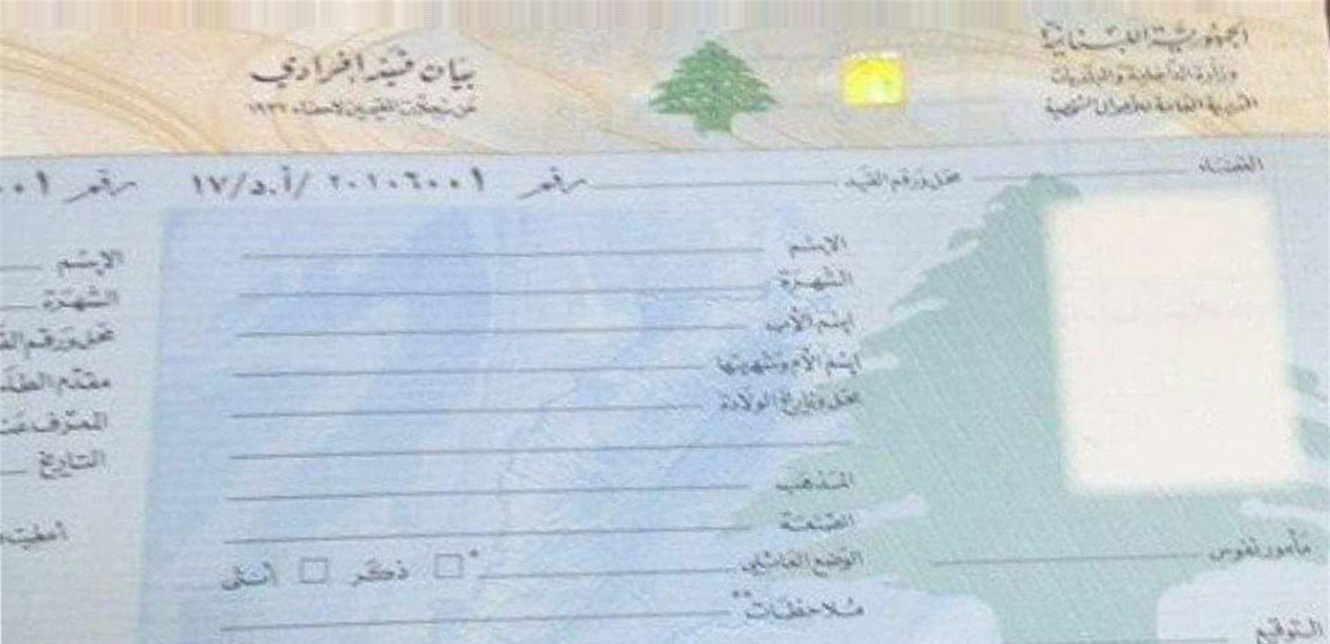 الجمهورية اللبنانية
وزارة الداخلية والبلديات
المديرية العامة للأحوال الشخصية
بيان قيد إفرادي
عن سجلات المقيمين لإحصاء ١٩٣٢
القضاء
محل ورقم القيد
رقم ٢٠١٠٦٠٠١ /أ.د/١٧
رقم
الإسم
الشهرة
إسم الأب
إسم الأم وشهرتها
محل وتاريخ الولادة
المذهب
الوضع العائلي * ذكر انثى
ملاحظات**
مأمور نفوس
التوقيع
الإسم
الشهرة
محل ورقم
مقدم
المعرف
التاريخ